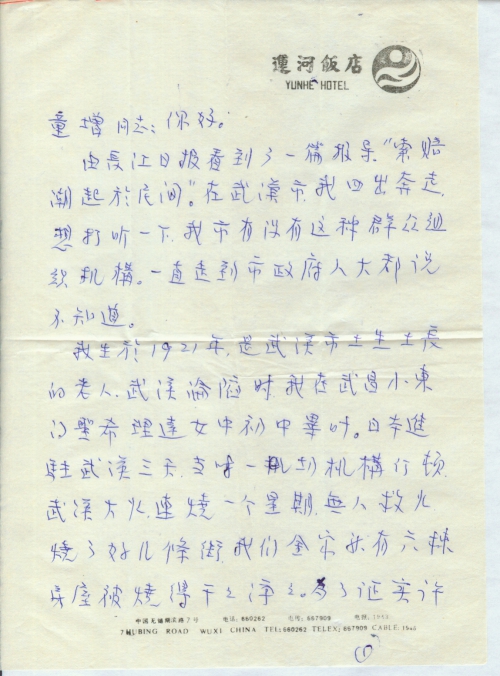 運河飯店
YUNHE HOTEL
童增同志：你好。
由長江日报看到了一篇报导"索赔
潮起於民间"。在武漢市，我四出奔走，
想打听一下，我市有没有这种群众组
织机構。一直走到市政府人大都说
不知道。
我生於1921年，是武漢市土生土長
的老人，武漢淪陷时，我在武昌小東
门聖希理達女中初中畢时。日本進
駐武漢三天，一切机構行顿，
武漢大火，連燒一个星期，無人救火
燒了好几條街，我们全家共有六棟
房屋被燒得干々淨々。為了证实许
中国无锡湖滨路7号 电话：660262 电传：667909 电挂：1993
7 HUBING ROAD WUXI CHINA TEL:660262 TELEX:667909 CABLE:
(1)